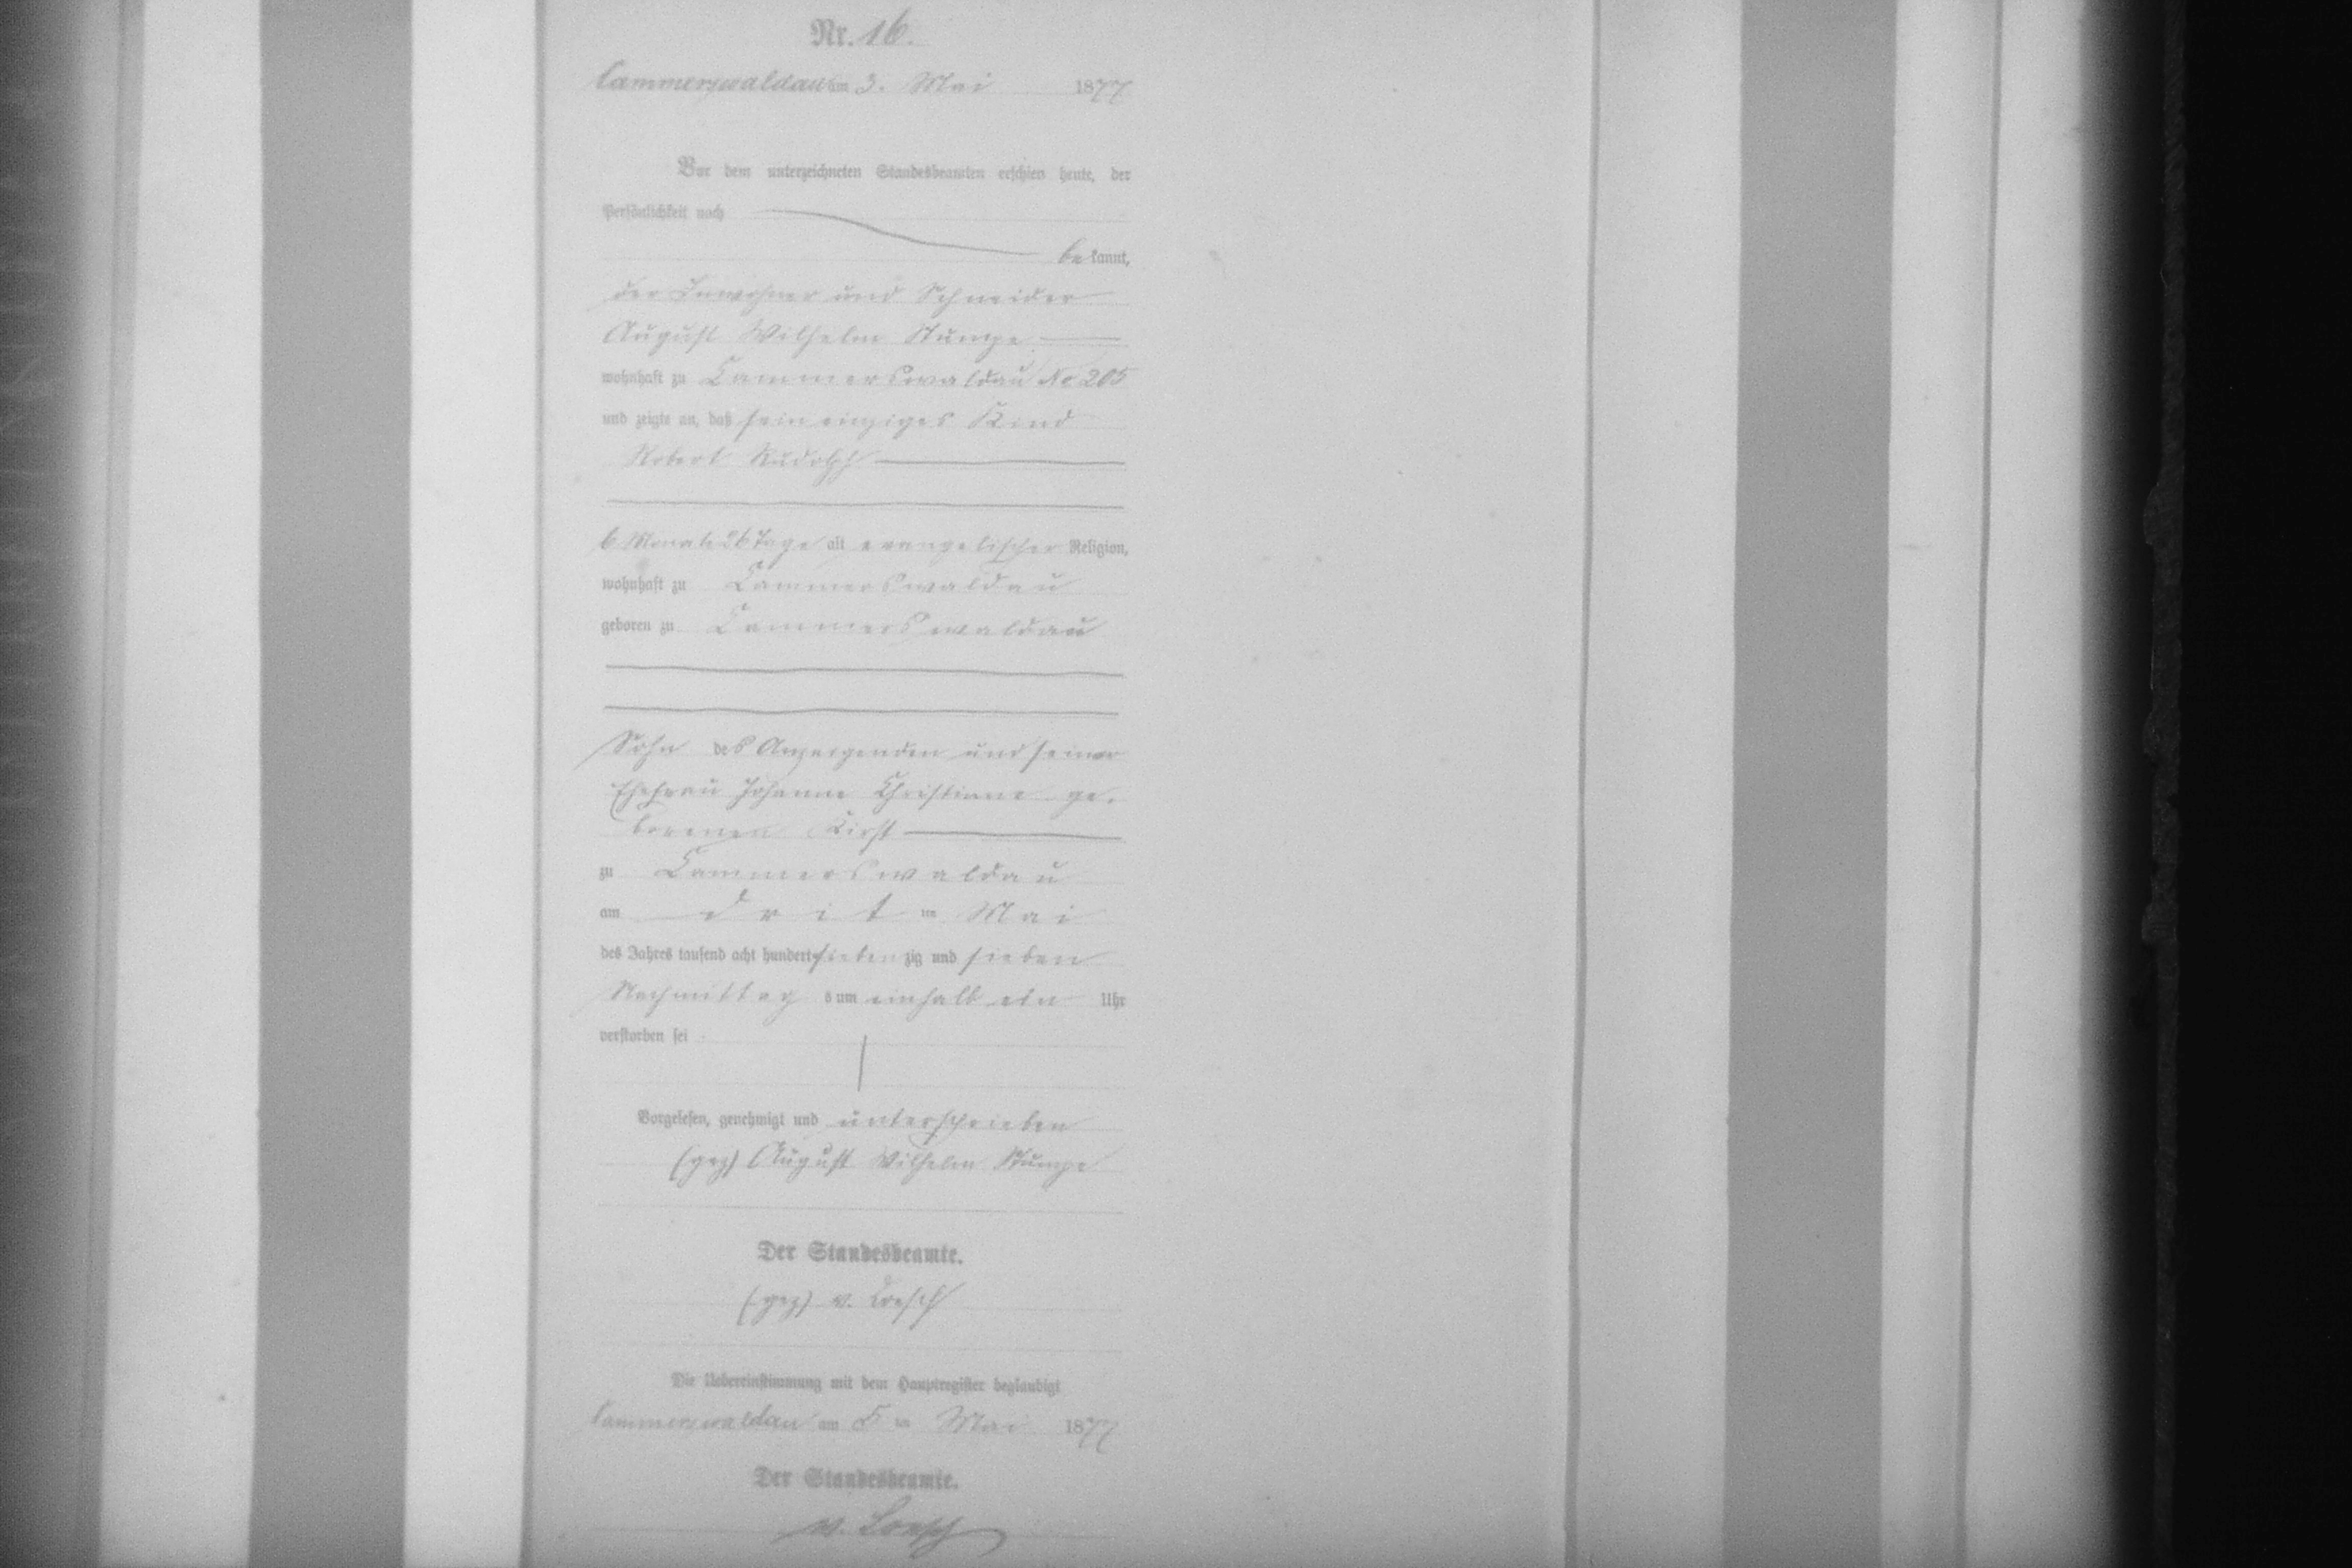 Nr. 16.
Cammerswaldau am 3. Mai 1877
Vor dem unterzeichneten Standesbeamten erschien heute, der
Persönlichkeit nach
bekannt,
der Inwohner und Schneider
August Wilhelm Stumpe
wohnhaft zu Cammerswaldau No 205
und zeigte an, daß sein einziges Kind
Robert Rudolph
6 Monate 26 Tage alt evangelischer Religion,
wohnhaft zu Cammerswaldau
geboren zu Cammerswaldau
Sohn des Anzeigenden und seiner
Ehefrau Johanne Christiane ge-
borenen Kirst
zu Cammerswaldau
am drit ten Mai
des Jahres tausend acht hundert siebenzig und sieben
Nachmittags um einhalb ein Uhr
verstorben sei
Vorgelesen, genehmigt und unterschrieben
(gez) August Wilhelm Stumpe
Der Standesbeamte.
(gez) v. Loesch
Die Uebereinstimmung mit dem Hauptregister beglaubigt
Cammerswaldau am 5 ten Mai 1877
Der Standesbeamte.
v. Loesch